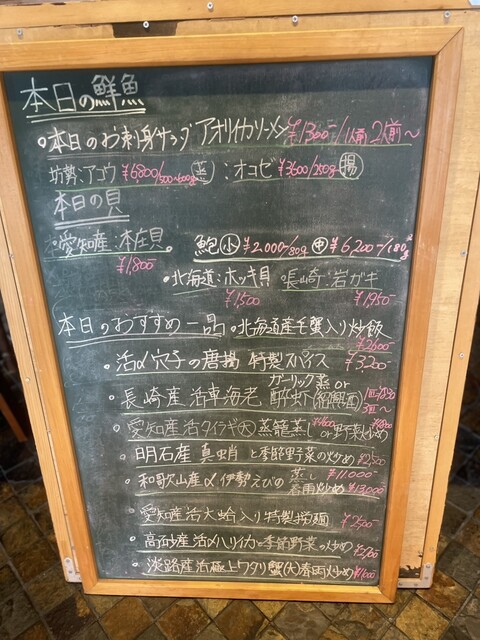 本日の鮮魚
・本日のお刺身サラダ アオリイカソーメン ¥1300-/1人前 2人前～
坊勢:アコウ ¥6800/500~600g 蒸 :オコゼ ¥3600/250g 揚
本日の貝
・愛知産:本在貝 鮑 小 ¥2.000-/80g 中 ¥6,200-/180g
¥1,800-
・北海道:ホッキ貝 長崎:岩ガキ
¥1,500 ¥1,950-
本日のおすすめ一品 ・北海道産毛蟹入り炒飯
¥2600-
・活〆穴子の唐揚 特製スパイス ¥3,200
・長崎産 活車海老 ガーリック蒸 or
・愛知産活タイラギ(大)蒸籠蒸し or 野菜炒め
・明石産 真蛸と季節野菜の炒め ¥2,500
・和歌山産〆伊勢えびの 蒸し ¥11.000-
春雨炒め ¥13,000-
・愛知産活大蛤入り特製撈麺 ¥2500-
・高砂産活〆ハリイカと季節野菜の炒め
・淡路産活極上ワタリ蟹(大)春雨炒め